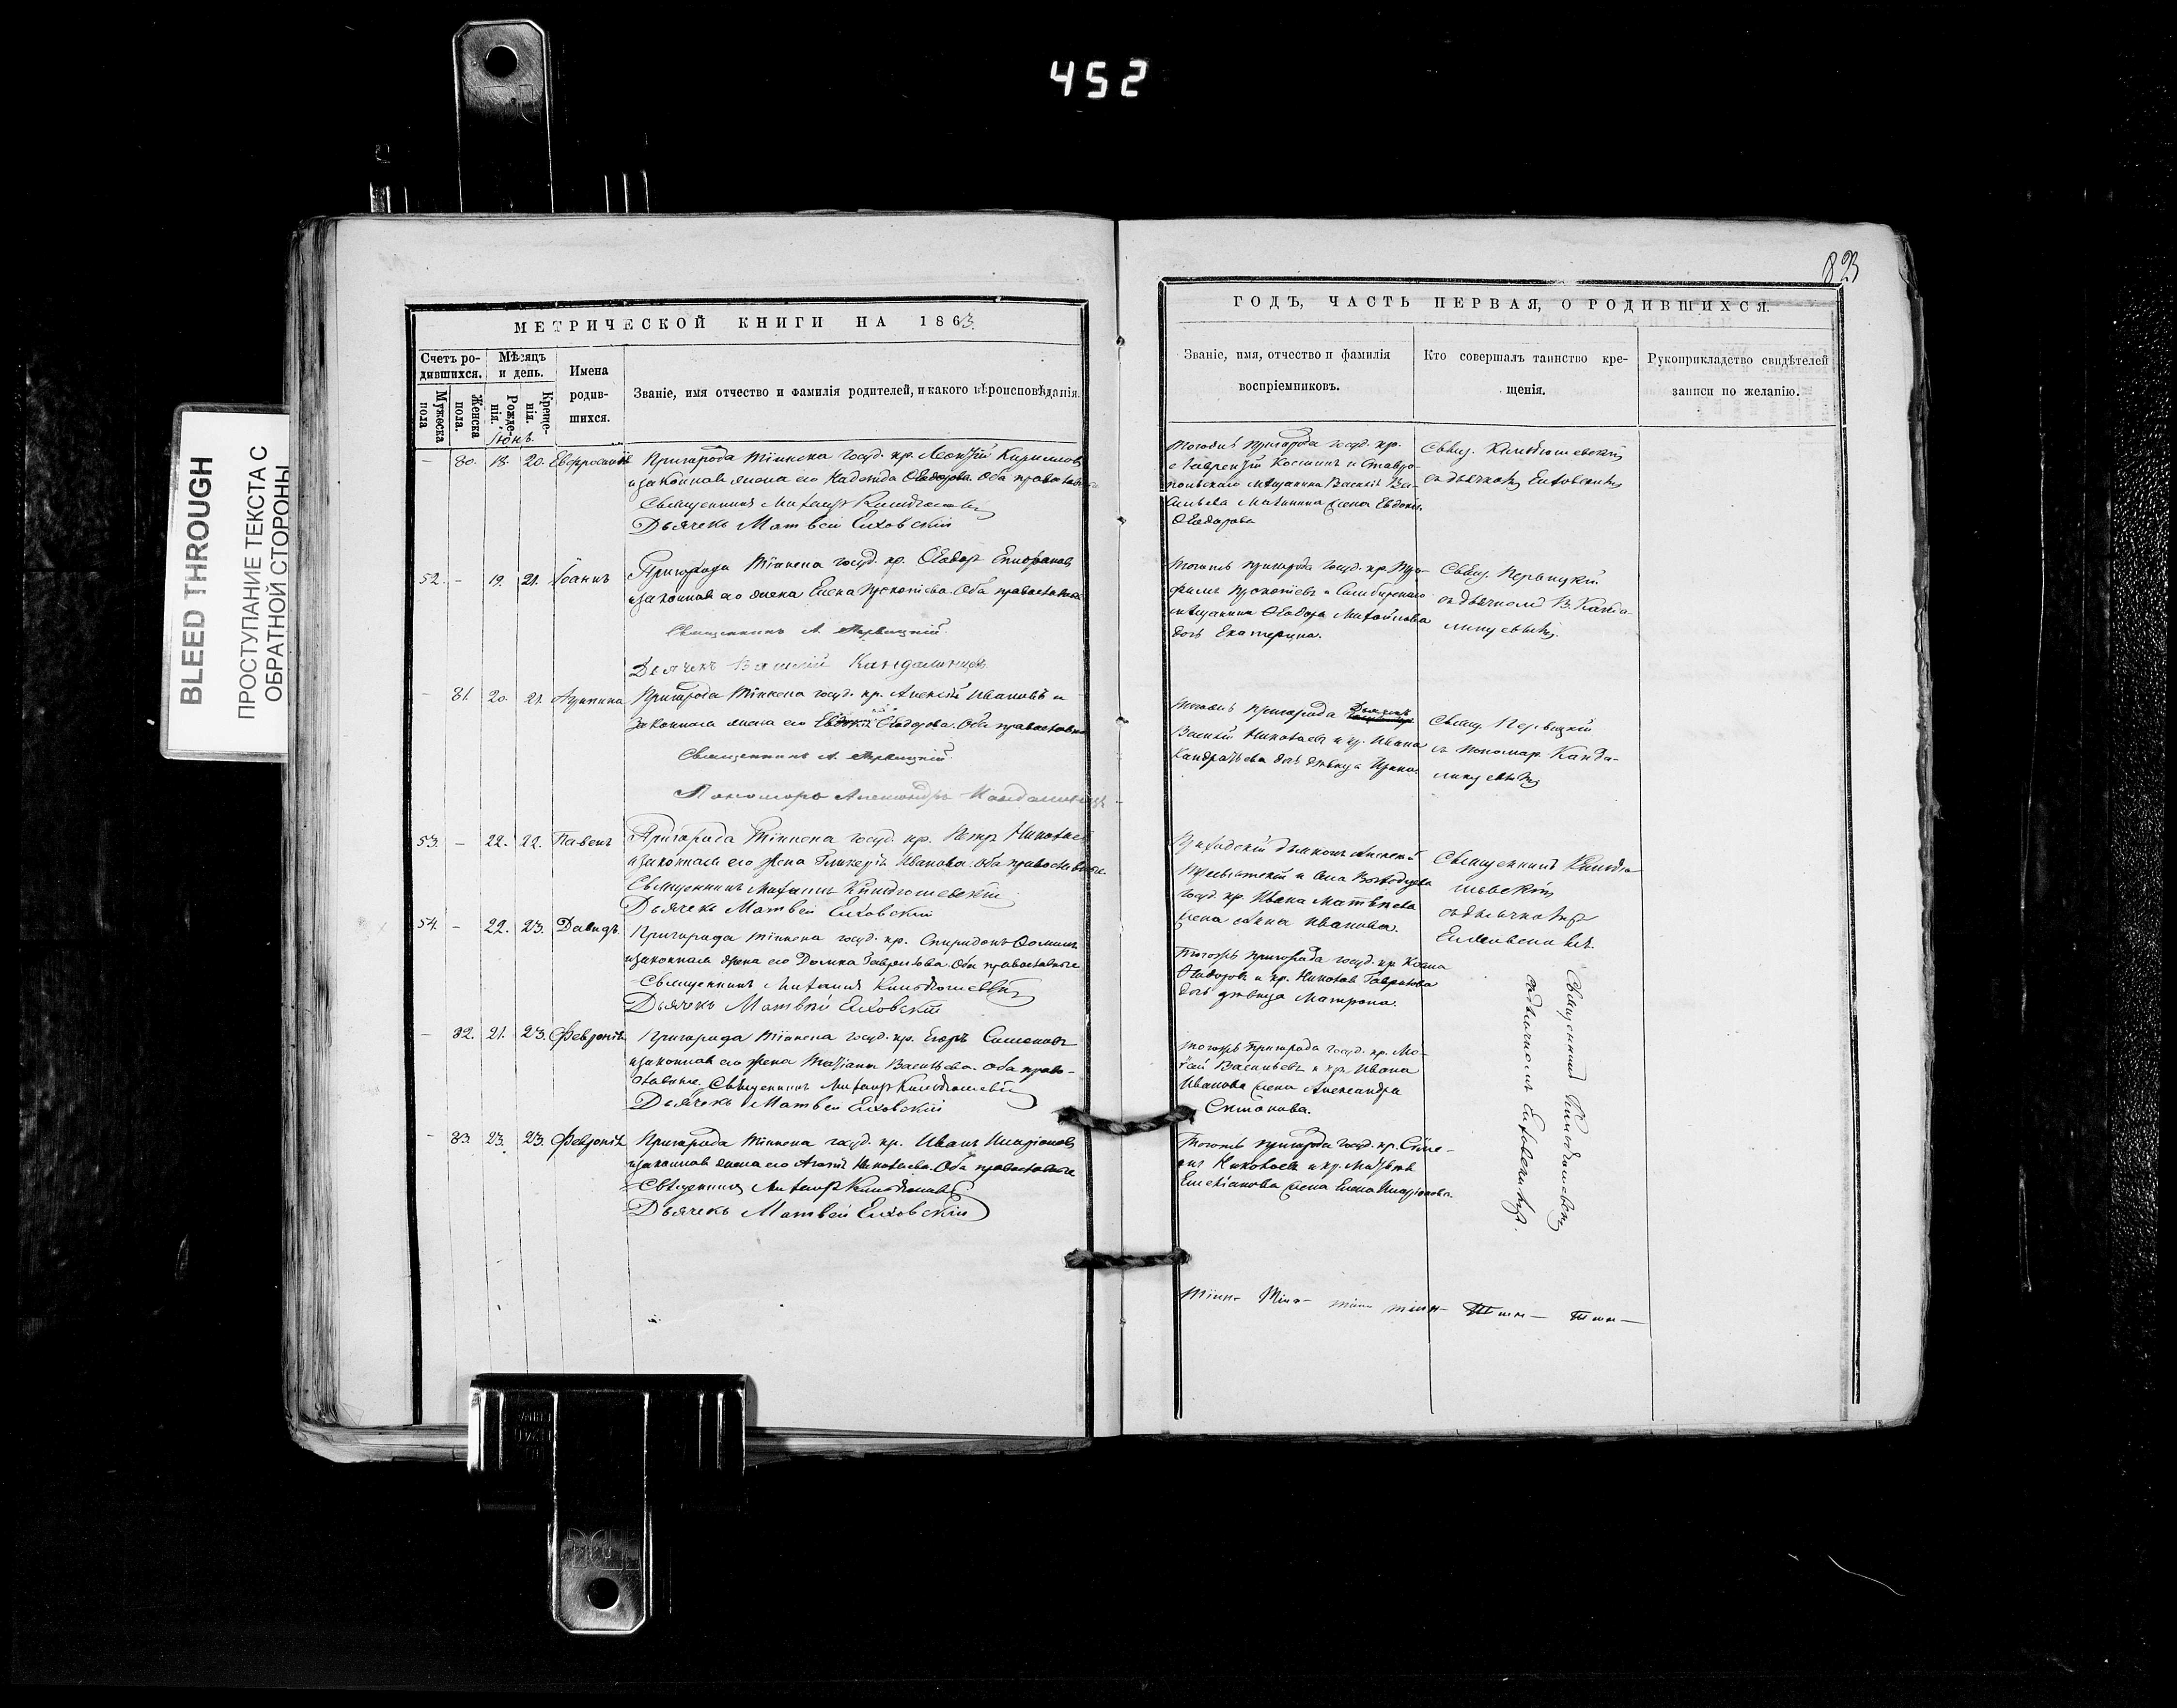 452
BLEED THROUGH
ПРОСТУПАНИЕ ТЕКСТА С
ОБРАТНОЙ СТОРОНЫ
МЕТРИЧЕСКОЙ КНИГИ НА 1863.
Счетъ ро-
дившихся.
Мужеска
пола
Женска
пола.
Мѣсяцъ
и день.
Рожде-
нія.
Креще-
нія.
Іюнь.
Имена
родив-
шихся.
Званіе, имя отчество и фамилія родителей, и какого вѣроисповѣданія.
— 80. 18. 20. Пригорода Тіинска госуд. кр. Леонтій Кириловъ
и законная жена его Надежда Ѳеодорова. Оба православные
Священникъ Михаилъ
Дьячекъ Матвей Елховскій
52. — 19. 21. Іоаннъ Пригорода Тіинска госуд. кр. Ѳеодоръ Епифановъ
и законная его жена Елена Прокопіева. Оба православные
Священникъ А. Первицкій.
Дьячекъ Василій
— 81. 20. 21. Пригорода Тіинска госуд. кр. Алексій Ивановъ и
законная жена его Ѳеодорова. Оба православные
Священникъ А. Первицкій
Пономарь Александръ
53. — 22. 22. Павелъ Пригорода Тіинска госуд. кр. Петръ Николаевъ
и законная его жена Гликерія Иванова. Оба православные.
Священникъ Михаилъ
Дьячекъ Матвей Елховскій
54. — 22. 23. Давидъ Пригорода Тіинска госуд. кр. Спиридонъ Ѳоминъ
и законная жена его Домна Гаврилова. Оба православные
Священникъ Михаилъ
Дьячекъ Матвей Елховскій
— 82. 21. 23. Февронія Пригорода Тіинска госуд. кр. Егоръ Симоновъ
и законная его жена Татіана Васильева. Оба право-
славные. Священникъ Михаилъ
Дьячекъ Матвей Елховскій
— 83. 23. 23. Февронія Пригорода Тіинска госуд. кр. Иванъ Иларіоновъ
и законная жена его Агапія Николаева. Оба православные
Священникъ Михаилъ
Дьячекъ Матвей Елховскій
823
ГОДЪ, ЧАСТЬ ПЕРВАЯ, О РОДИВШИХСЯ.
Званіе, имя, отчество и фамилія
воспріемниковъ.
Кто совершалъ таинство кре-
щенія.
Рукоприкладство свидѣтелей
записи по желанію.
Тогожъ пригорода госуд. кр.
Лаврентій Костинъ и Ставро-
польскаго мѣщанина Василія Ва-
сильева жена Евдокія
Ѳеодорова
Свящ.
съ дьячкомъ Елховскимъ
Тогожъ пригорода госуд. кр. Тро-
фимъ Прокопіевъ и Симбирскаго
мѣщанина Ѳеодора Михайлова
дочь Екатерина.
Свящ. Первицкій
съ дьячкомъ В. Канда-
Тогожъ пригорода Дьячекъ
Василій Николаевъ и кр. Ивана
Кандратьева дочь дѣвица Ирина.
Свящ. Первицкій
съ пономар. Канда-
Приходскій дьяконъ Алексѣй
госуд. кр. Ивана Матвѣева
жена Анна Иванова.
Священникъ
съ дьячкомъ
Тогожъ пригорода госуд. кр. Козма
Ѳеодоровъ и кр. Николая Гаврилова
дочь дѣвица Матрона.
Священникъ
съ дьячкомъ Елховскимъ.
Тогожъ пригорода госуд. кр.
Васильевъ и кр. Ивана
Иванова жена Александра
Тогожъ пригорода госуд. кр. Симе-
онъ Николаевъ и кр. Матвѣя
Емеліанова жена Елена Иларіонова.
Тіин— Тіин— тіин тіин— Тіин— Тіин—